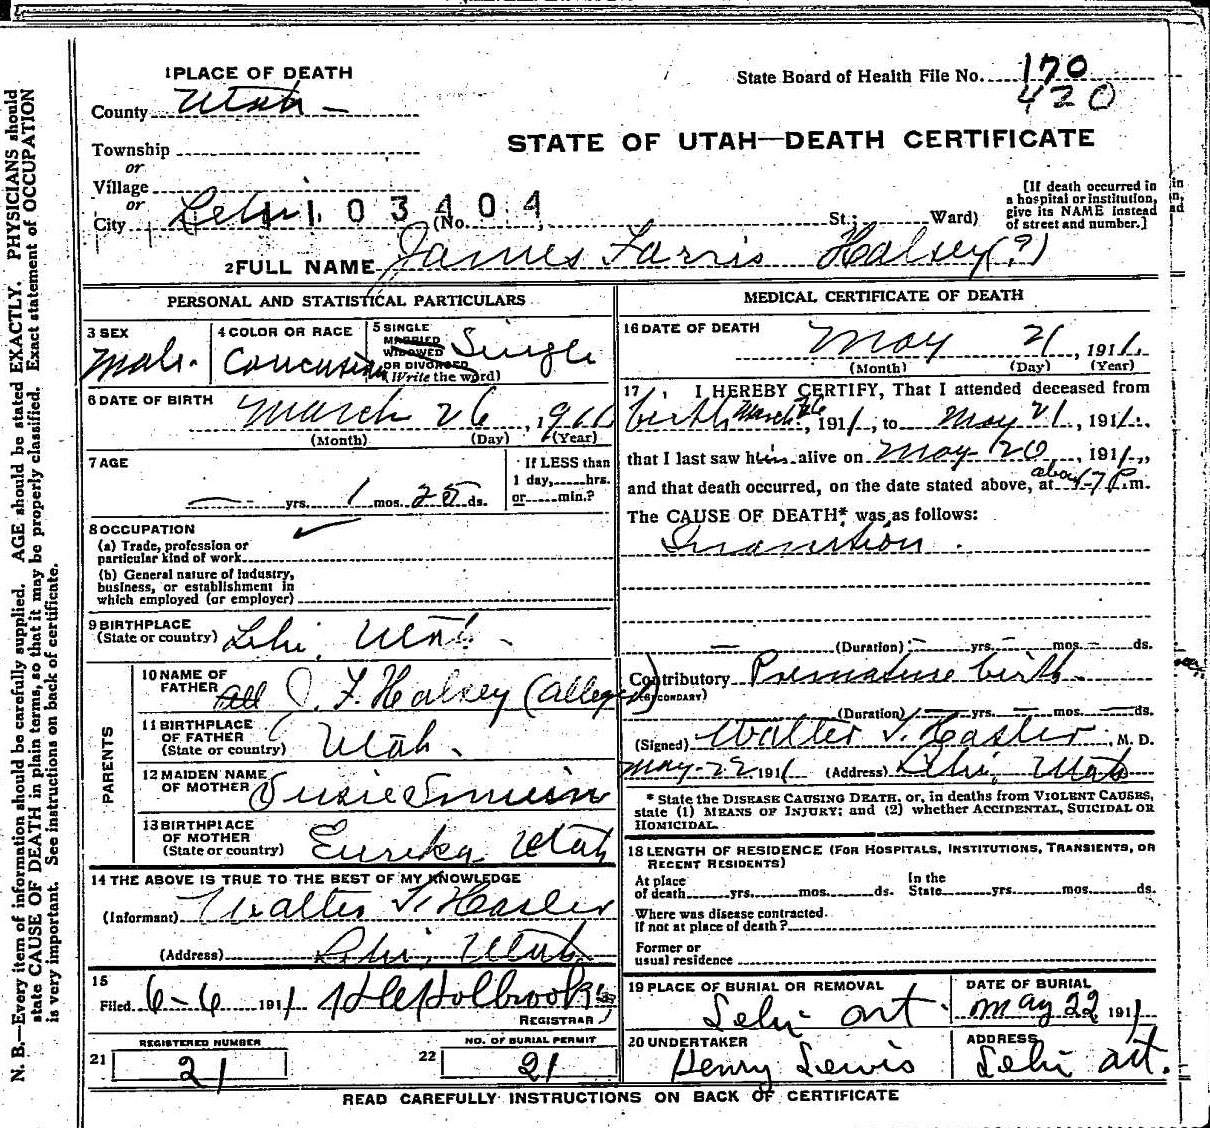 1 PLACE OF DEATH
State Board of Health File No. 170
420
County Utah
STATE OF UTAH—DEATH CERTIFICATE
Township
or
Village
or
City Lehi 1 0 3 4 0 4 (No. St.; Ward)
[If death occurred in
a hospital or institution,
give its NAME instead
of street and number.]
2 FULL NAME James Farris Halsey (?)
PERSONAL AND STATISTICAL PARTICULARS
3 SEX
Male.
4 COLOR OR RACE
5 SINGLE
MARRIED
WIDOWED
OR DIVORCED
(Write the word)
Single
6 DATE OF BIRTH
March 26, 1911
(Month) (Day) (Year)
7 AGE
— yrs. 1 mos. 25 ds.
If LESS than
1 day, hrs.
or min.?
8 OCCUPATION
(a) Trade, profession or
particular kind of work
(b) General nature of industry,
business, or establishment in
which employed (or employer)
9 BIRTHPLACE
(State or country) Lehi, Utah.
PARENTS
10 NAME OF
FATHER All J. F. Halsey (alleged)
11 BIRTHPLACE
OF FATHER
(State or country) Utah.
12 MAIDEN NAME
OF MOTHER Susie
13 BIRTHPLACE
OF MOTHER
(State or country) Eureka, Utah
14 THE ABOVE IS TRUE TO THE BEST OF MY KNOWLEDGE
(Informant) Walter T. Hasler
(Address) Lehi, Utah.
15
Filed 6-6 1911 Holbrook
REGISTRAR
REGISTERED NUMBER
21 21
NO. OF BURIAL PERMIT
22 21
MEDICAL CERTIFICATE OF DEATH
16 DATE OF DEATH
May 21, 1911.
(Month) (Day) (Year)
17 I HEREBY CERTIFY, That I attended deceased from
birth March 26, 1911, to May 21, 1911.,
that I last saw him alive on May 20, 1911.,
and that death occurred, on the date stated above, at about 7 P.m.
The CAUSE OF DEATH* was as follows:
Inanition.
(Duration) — yrs. — mos. — ds.
Contributory Premature birth
(SECONDARY)
(Duration) — yrs. — mos. — ds.
(Signed) Walter T. Hasler, M. D.
May-22 1911 (Address) Lehi, Utah
* State the DISEASE CAUSING DEATH, or, in deaths from VIOLENT CAUSES,
state (1) MEANS OF INJURY; and (2) whether ACCIDENTAL, SUICIDAL OR
HOMICIDAL.
18 LENGTH OF RESIDENCE (FOR HOSPITALS, INSTITUTIONS, TRANSIENTS, OR
RECENT RESIDENTS)
At place
of death yrs. mos. ds.
In the
State yrs. mos. ds.
Where was disease contracted.
If not at place of death?
Former or
usual residence
19 PLACE OF BURIAL OR REMOVAL
Lehi
DATE OF BURIAL
May 22 1911
20 UNDERTAKER
Henry Lewis
ADDRESS
Lehi
READ CAREFULLY INSTRUCTIONS ON BACK OF CERTIFICATE
N. B.—Every item of information should be carefully supplied. AGE should be stated EXACTLY. PHYSICIANS should
state CAUSE OF DEATH in plain terms, so that it may be properly classified. Exact statement of OCCUPATION
is very important. See instructions on back of certificate.